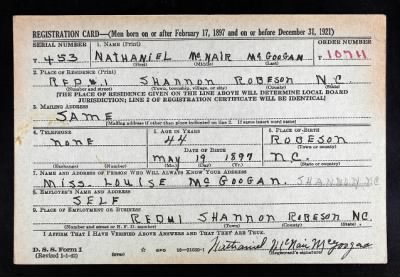 REGISTRATION CARD—(Men born on or after February 17, 1897 and on or before December 31, 1921)
SERIAL NUMBER 1. NAME (Print) ORDER NUMBER
T 453 NATHANIEL McNAIR McGOOGAN
(First) (Middle) (Last)
2. PLACE OF RESIDENCE (Print)
RFD#1 SHANNON ROBESON N.C.
(Number and street) (Town, township, village, or city) (County) (State)
[THE PLACE OF RESIDENCE GIVEN ON THE LINE ABOVE WILL DETERMINE LOCAL BOARD
JURISDICTION; LINE 2 OF REGISTRATION CERTIFICATE WILL BE IDENTICAL]
3. MAILING ADDRESS
SAME
(Mailing address if other than place indicated on line 2. If same insert word same)
4. TELEPHONE 5. AGE IN YEARS 6. PLACE OF BIRTH
NONE 44 ROBESON
DATE OF BIRTH (Town or county)
MAY 19 1897 N.C.
(Exchange) (Number) (Mo.) (Day) (Yr.) (State or country)
7. NAME AND ADDRESS OF PERSON WHO WILL ALWAYS KNOW YOUR ADDRESS
MISS. LOUISE McGOOGAN. SHANNON NC
8. EMPLOYER'S NAME AND ADDRESS
SELF
9. PLACE OF EMPLOYMENT OR BUSINESS
RFD#1 SHANNON ROBESON NC.
(Number and street or R. F. D. number) (Town) (County) (State)
I AFFIRM THAT I HAVE VERIFIED ABOVE ANSWERS AND THAT THEY ARE TRUE.
D. S. S. Form 1
(Revised 1-1-42) GPO 16—21630-1 Nathaniel McNair McGoogan
(Registrant's signature)